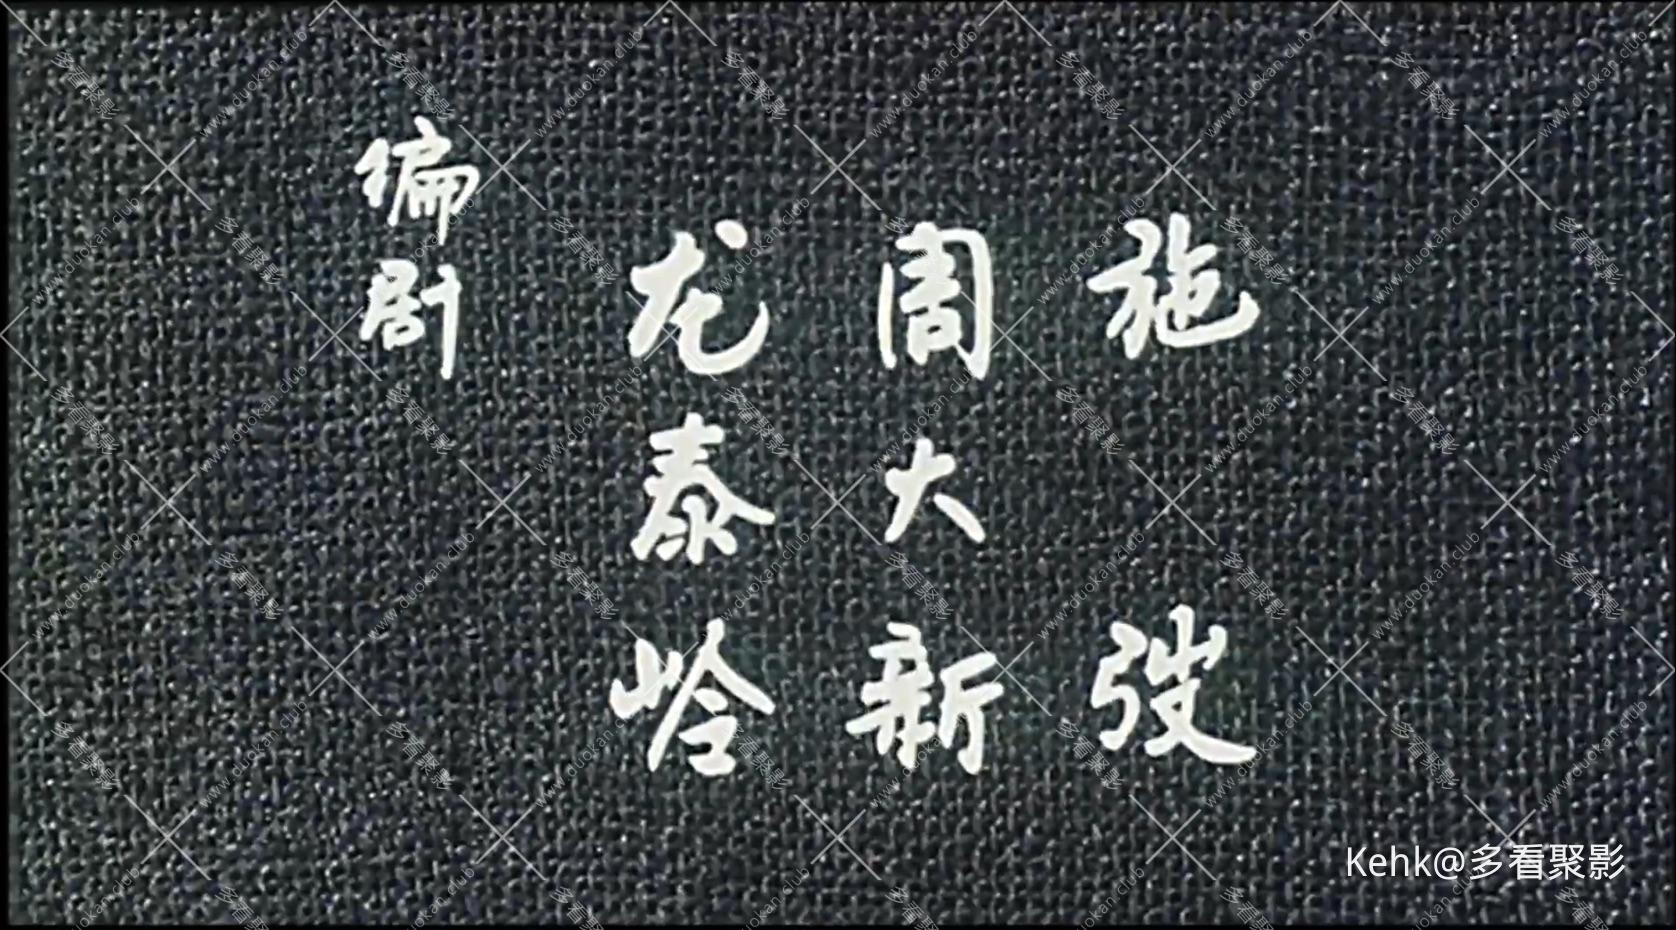 编剧
龙泰岭
周大新
施弢
Kehk@多看聚影
多看聚影
www.duokan.club